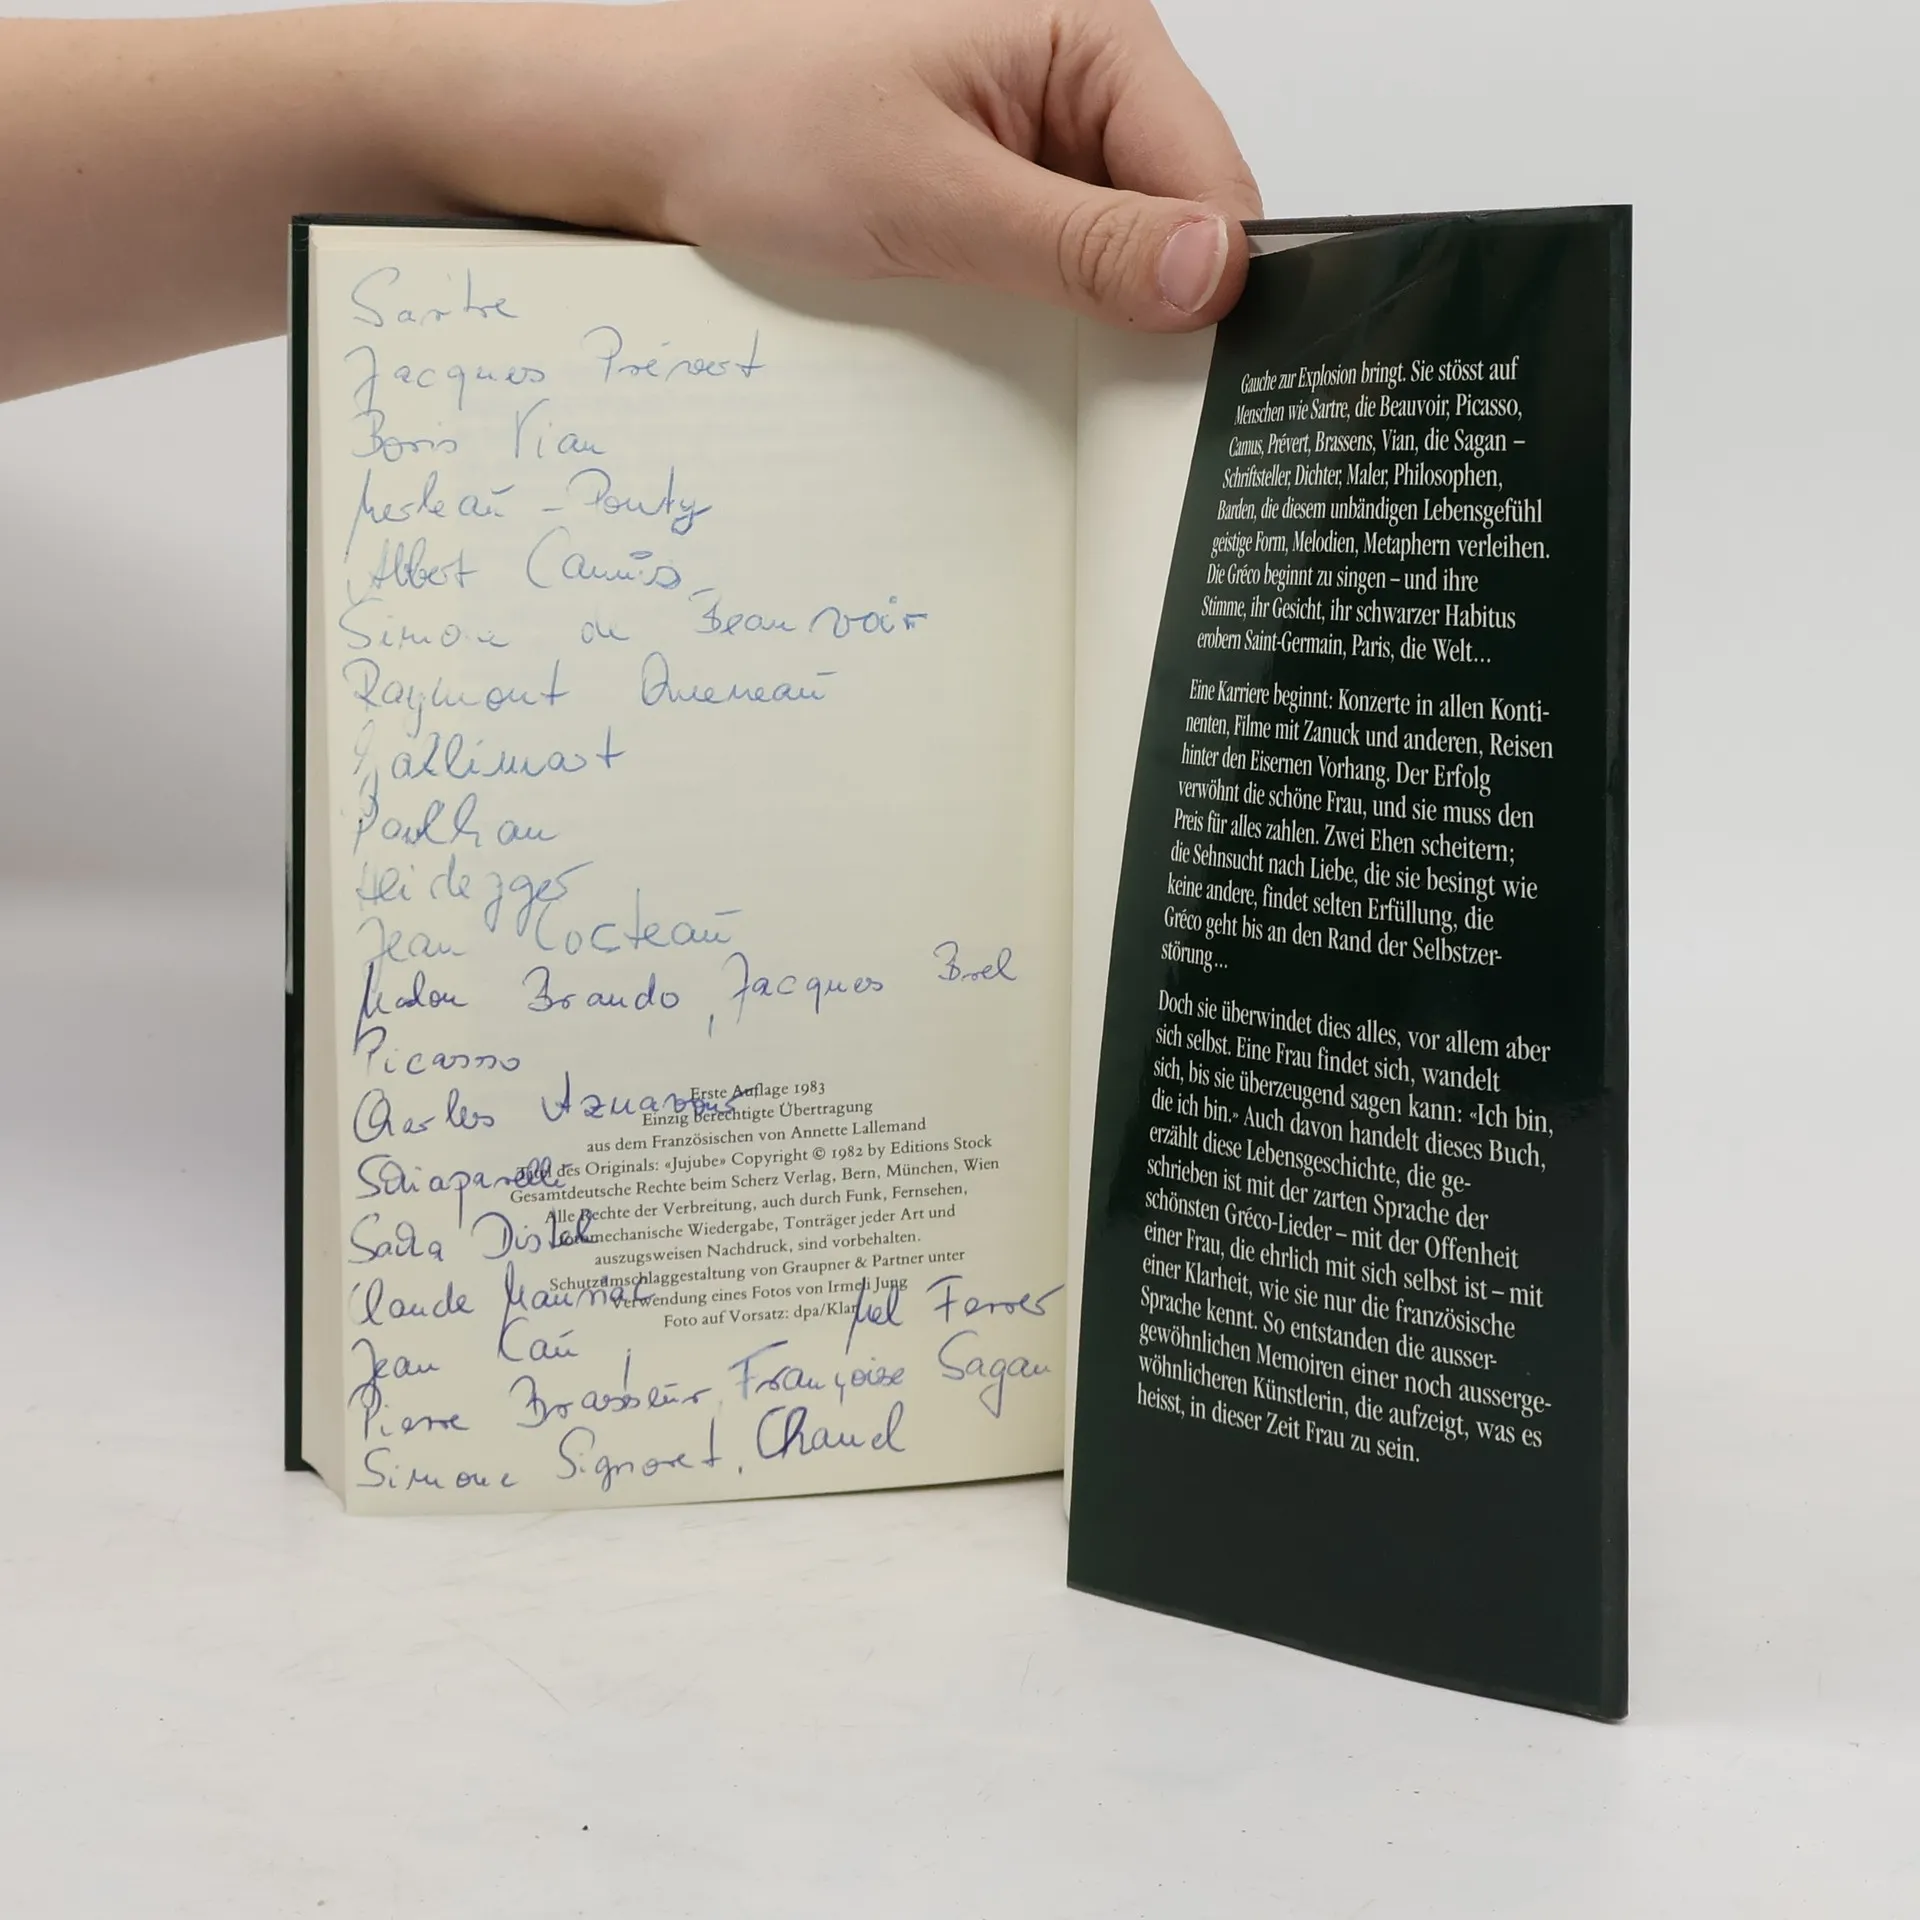 Sartre
Jacques Prévert
Boris Vian
Merleau - Ponty
Albert Camus
Simone de Beauvoir
Raymont Queneau
Gallimart
Paulhan
Heidegger
Jean Cocteau
Marlon Brando, Jacques Brel
Picasso
Charles Aznavour
Schiaparelli
Sacha Distel
Claude Mauriac
Mel Ferrer
Jean Cau
Pierre Brasseur, Françoise Sagan
Simone Signoret, Chanel
Erste Auflage 1983
Einzig berechtigte Übertragung
aus dem Französischen von Annette Lallemand
Titel des Originals: «Jujube» Copyright © 1982 by Editions Stock
Gesamtdeutsche Rechte beim Scherz Verlag, Bern, München, Wien
Alle Rechte der Verbreitung, auch durch Funk, Fernsehen,
fotomechanische Wiedergabe, Tonträger jeder Art und
auszugsweisen Nachdruck, sind vorbehalten.
Schutzumschlaggestaltung von Graupner & Partner unter
Verwendung eines Fotos von Irmeli Jung
Foto auf Vorsatz: dpa/Klar
Gauche zur Explosion bringt. Sie stösst auf
Menschen wie Sartre, die Beauvoir, Picasso,
Camus, Prévert, Brassens, Vian, die Sagan –
Schriftsteller, Dichter, Maler, Philosophen,
Barden, die diesem unbändigen Lebensgefühl
geistige Form, Melodien, Metaphern verleihen.
Die Gréco beginnt zu singen – und ihre
Stimme, ihr Gesicht, ihr schwarzer Habitus
erobern Saint-Germain, Paris, die Welt...
Eine Karriere beginnt: Konzerte in allen Konti-
nenten, Filme mit Zanuck und anderen, Reisen
hinter den Eisernen Vorhang. Der Erfolg
verwöhnt die schöne Frau, und sie muss den
Preis für alles zahlen. Zwei Ehen scheitern;
die Sehnsucht nach Liebe, die sie besingt wie
keine andere, findet selten Erfüllung, die
Gréco geht bis an den Rand der Selbstzer-
störung...
Doch sie überwindet dies alles, vor allem aber
sich selbst. Eine Frau findet sich, wandelt
sich, bis sie überzeugend sagen kann: «Ich bin,
die ich bin.» Auch davon handelt dieses Buch,
erzählt diese Lebensgeschichte, die ge-
schrieben ist mit der zarten Sprache der
schönsten Gréco-Lieder – mit der Offenheit
einer Frau, die ehrlich mit sich selbst ist – mit
einer Klarheit, wie sie nur die französische
Sprache kennt. So entstanden die ausser-
gewöhnlichen Memoiren einer noch ausserge-
wöhnlicheren Künstlerin, die aufzeigt, was es
heisst, in dieser Zeit Frau zu sein.